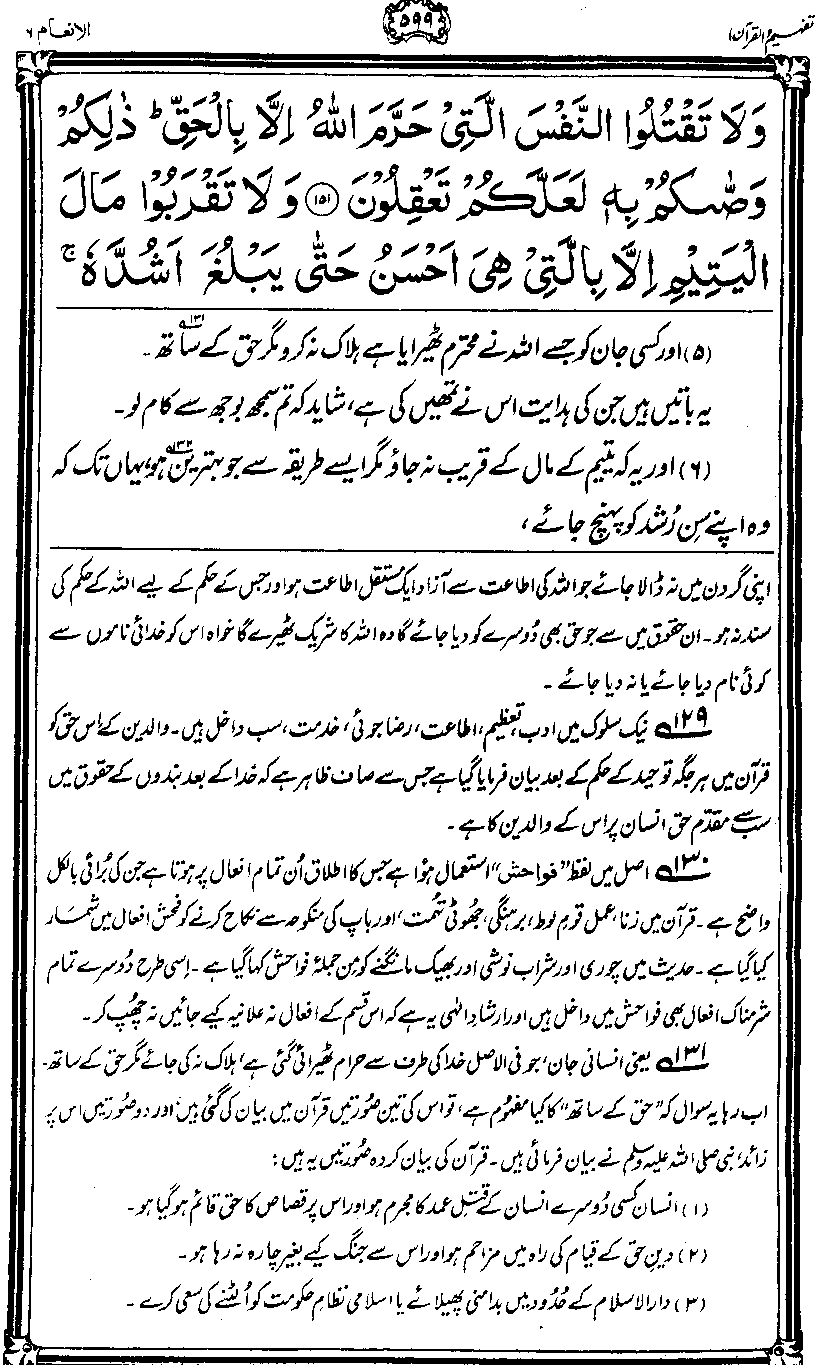 تفہیم القرآن ۱
۵۹۹
الانعام ۶
وَلَا تَقْتُلُوا النَّفْسَ الَّتِیْ حَرَّمَ اللّٰهُ اِلَّا بِالْحَقِّ ؕ ذٰلِكُمْ
وَصّٰىكُمْ بِهٖ لَعَلَّكُمْ تَعْقِلُوْنَ ﴿۱۵۱﴾ وَلَا تَقْرَبُوْا مَالَ
الْیَتِیْمِ اِلَّا بِالَّتِیْ هِیَ اَحْسَنُ حَتّٰی یَبْلُغَ اَشُدَّهٗ ۚ
(۵) اور کسی جان کو جسے اللہ نے محترم ٹھیرایا ہے ہلاک نہ کرو مگر حق کے ساتھ۱۳۱۔
یہ باتیں ہیں جن کی ہدایت اس نے تمھیں کی ہے، شاید کہ تم سمجھ بوجھ سے کام لو۔
(۶) اور یہ کہ یتیم کے مال کے قریب نہ جاؤ مگر ایسے طریقہ سے جو بہترین۱۳۲ ہو، یہاں تک کہ
وہ اپنے سِن رُشد کو پہنچ جائے،
اپنی گردن میں نہ ڈالا جائے جو اللہ کی اطاعت سے آزاد ایک مستقل اطاعت ہو اور جس کے حکم کے لیے اللہ کے حکم کی
سند نہ ہو۔ ان حقوق میں سے جو حق بھی دُوسرے کو دیا جائے گا وہ اللہ کا شریک ٹھیرے گا خواہ اس کو خدائی ناموں سے
کوئی نام دیا جائے یا نہ دیا جائے۔
۱۲۹ نیک سلوک میں ادب، تعظیم، اطاعت، رضا جوئی، خدمت، سب داخل ہیں۔ والدین کے اس حق کو
قرآن میں ہر جگہ توحید کے حکم کے بعد بیان فرمایا گیا ہے جس سے صاف ظاہر ہے کہ خدا کے بعد بندوں کے حقوق میں
سب سے مقدّم حق انسان پر اس کے والدین کا ہے۔
۱۳۰ اصل میں لفظ ”فواحش“ استعمال ہؤا ہے جس کا اطلاق اُن تمام افعال پر ہوتا ہے جن کی بُرائی بالکل
واضح ہے۔ قرآن میں زنا، عمل قومِ لوط، برہنگی، جھوٹی تُہمت، اور باپ کی منکوحہ سے نکاح کرنے کو فحش افعال میں شمار
کیا گیا ہے۔ حدیث میں چوری اور شراب نوشی اور بھیک مانگنے کو مِن جملۂ فواحش کہا گیا ہے۔ اِسی طرح دُوسرے تمام
شرمناک افعال بھی فواحش میں داخل ہیں اور ارشادِ الٰہی یہ ہے کہ اس قسم کے افعال نہ علانیہ کیے جائیں نہ چھُپ کر۔
۱۳۱ یعنی انسانی جان، جو فی الاصل خدا کی طرف سے حرام ٹھیرائی گئی ہے، ہلاک نہ کی جائے مگر حق کے ساتھ۔
اب رہا یہ سوال کہ ”حق کے ساتھ“ کا کیا مفہُوم ہے، تو اس کی تین صورتیں قرآن میں بیان کی گئی ہیں، اور دو صورتیں اس پر
زائد، نبی صلی اللہ علیہ وسلم نے بیان فرمائی ہیں۔ قرآن کی بیان کردہ صُورتیں یہ ہیں:
(۱) انسان کسی دُوسرے انسان کے قتلِ عمد کا مجرم ہو اور اس پر قصاص کا حق قائم ہوگیا ہو۔
(۲) دینِ حق کے قیام کی راہ میں مزاحم ہو اور اس سے جنگ کیے بغیر چارہ نہ رہا ہو۔
(۳) دارالاسلام کے حُدُود میں بدامنی پھیلائے یا اسلامی نظامِ حکومت کو اُلٹنے کی سعی کرے۔